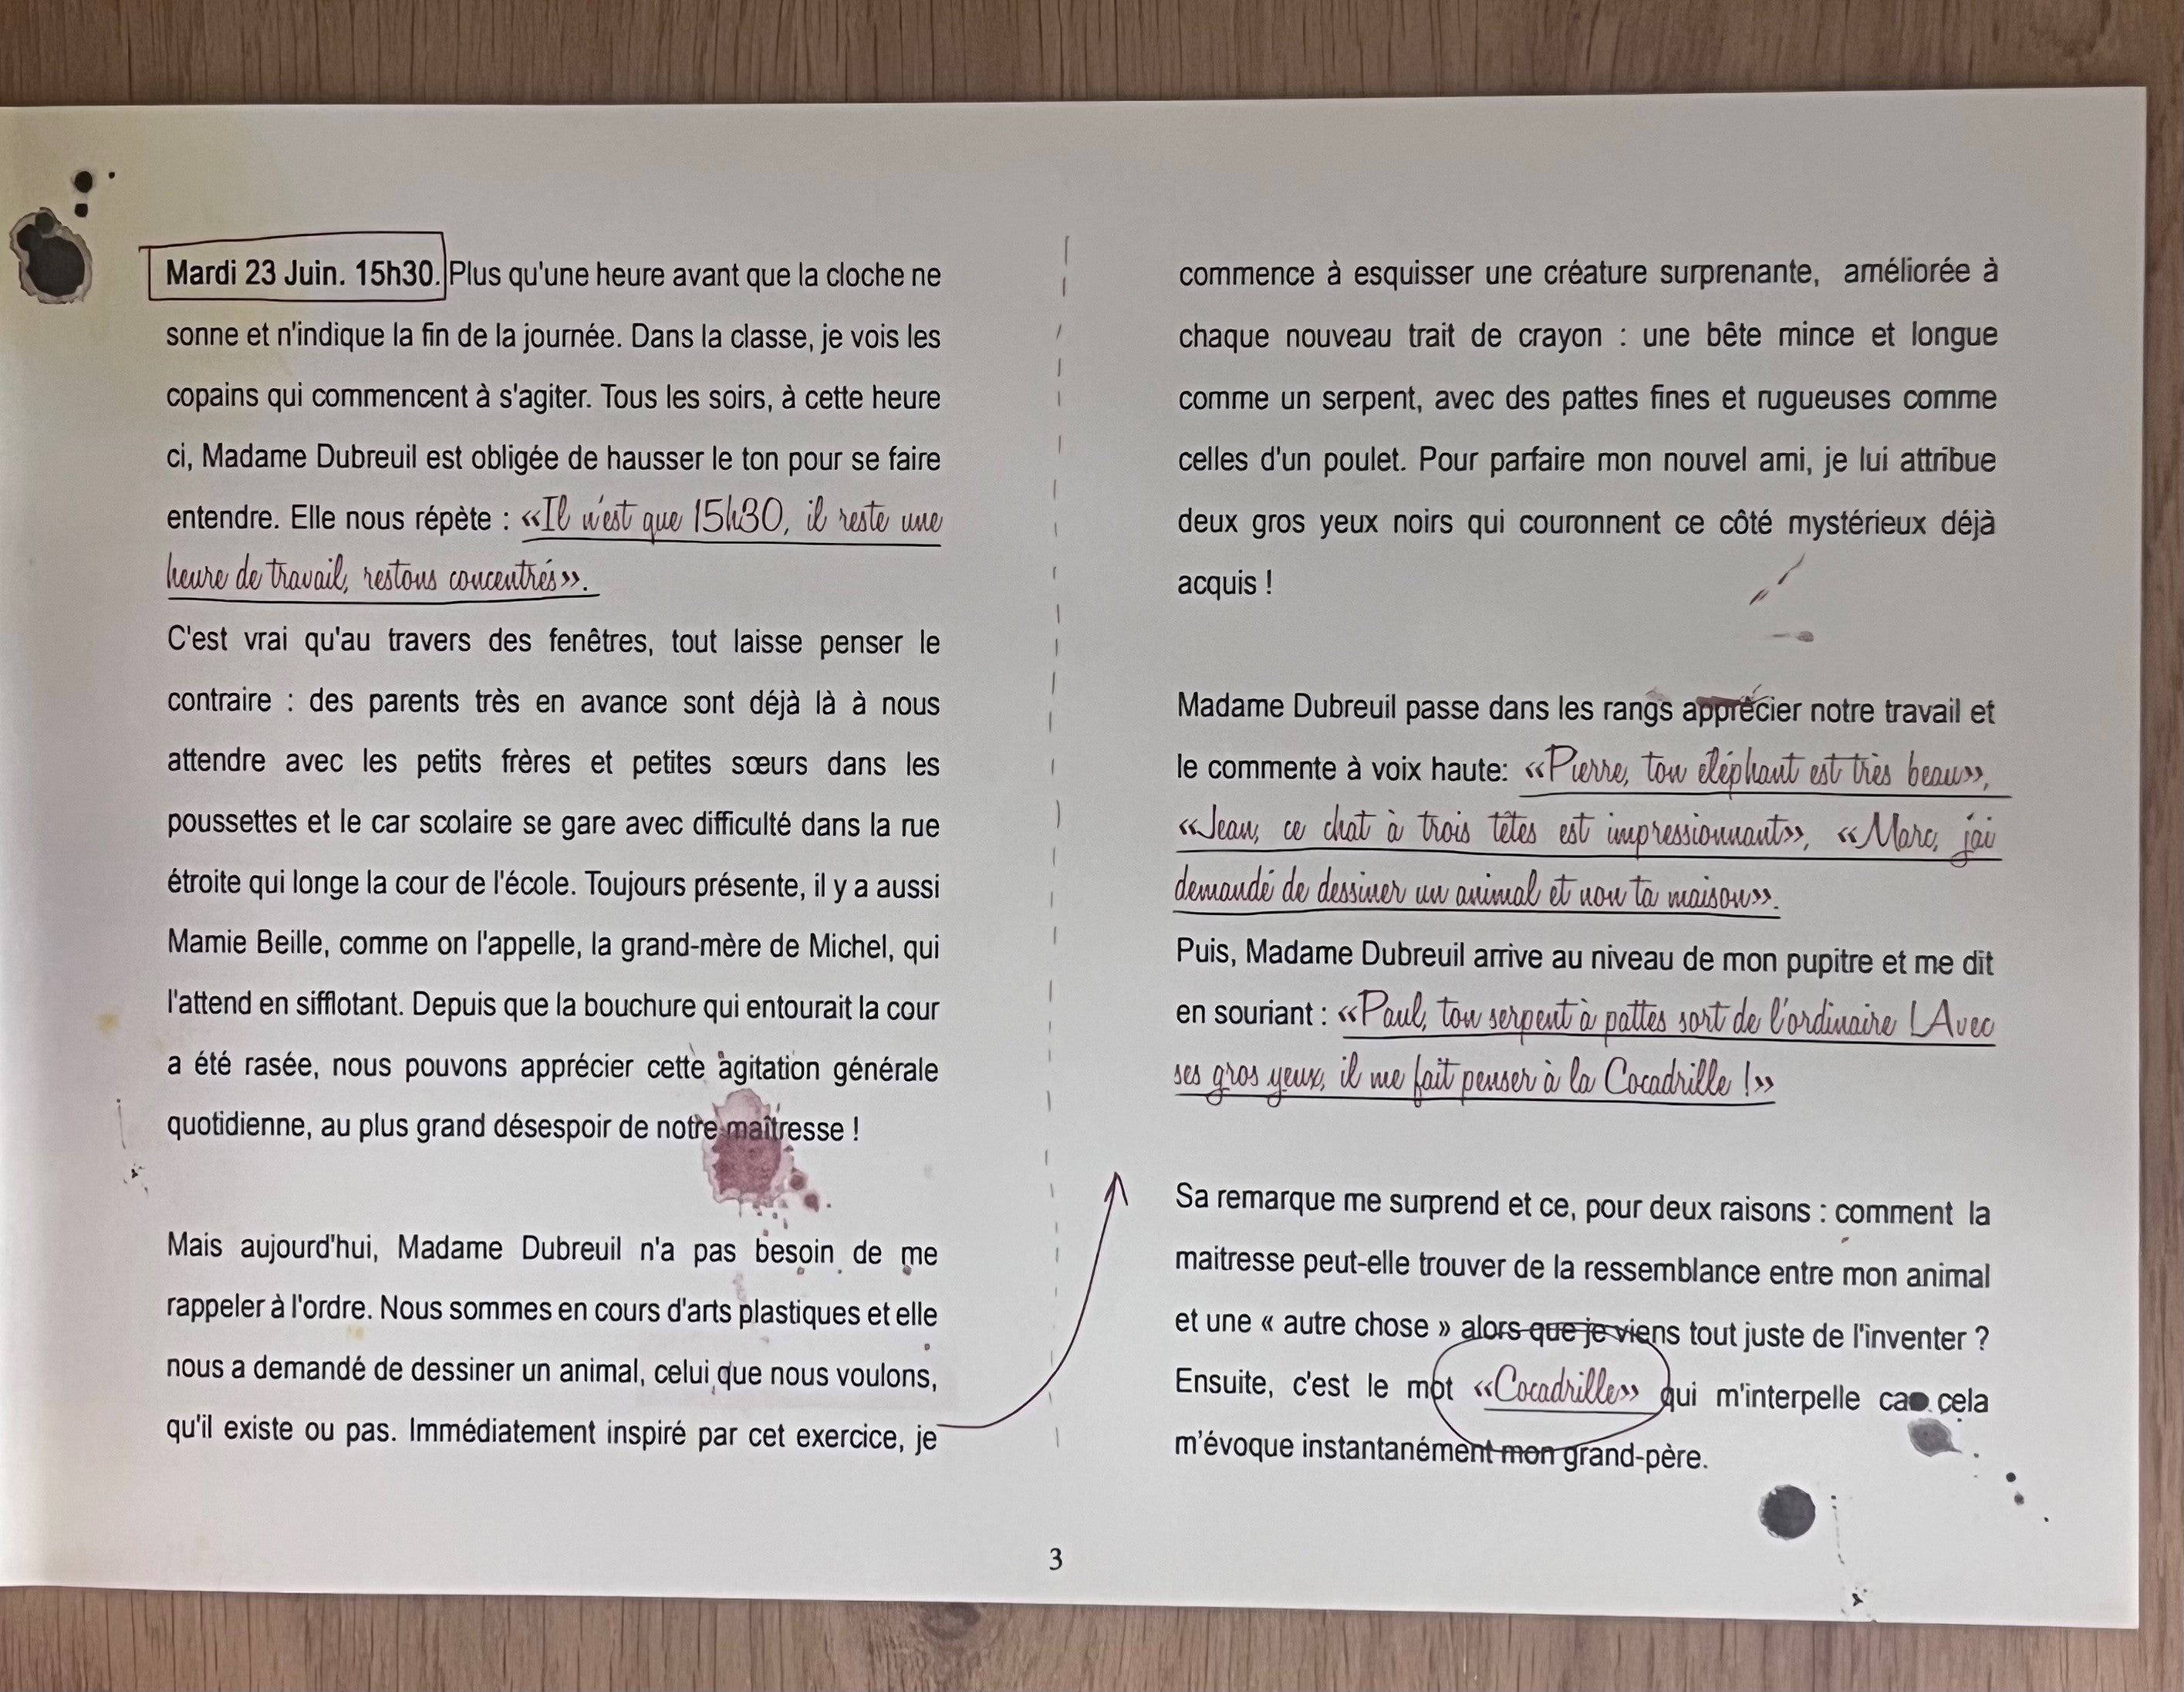 Mardi 23 Juin. 15h30. Plus qu'une heure avant que la cloche ne
sonne et n'indique la fin de la journée. Dans la classe, je vois les
copains qui commencent à s'agiter. Tous les soirs, à cette heure
ci, Madame Dubreuil est obligée de hausser le ton pour se faire
entendre. Elle nous répète : «Il n'est que 15h30, il reste une
heure de travail, restons concentrés».
C'est vrai qu'au travers des fenêtres, tout laisse penser le
contraire : des parents très en avance sont déjà là à nous
attendre avec les petits frères et petites sœurs dans les
poussettes et le car scolaire se gare avec difficulté dans la rue
étroite qui longe la cour de l'école. Toujours présente, il y a aussi
Mamie Beille, comme on l'appelle, la grand-mère de Michel, qui
l'attend en sifflotant. Depuis que la bouchure qui entourait la cour
a été rasée, nous pouvons apprécier cette agitation générale
quotidienne, au plus grand désespoir de notre maîtresse !
Mais aujourd'hui, Madame Dubreuil n'a pas besoin de me
rappeler à l'ordre. Nous sommes en cours d'arts plastiques et elle
nous a demandé de dessiner un animal, celui que nous voulons,
qu'il existe ou pas. Immédiatement inspiré par cet exercice, je
commence à esquisser une créature surprenante, améliorée à
chaque nouveau trait de crayon : une bête mince et longue
comme un serpent, avec des pattes fines et rugueuses comme
celles d'un poulet. Pour parfaire mon nouvel ami, je lui attribue
deux gros yeux noirs qui couronnent ce côté mystérieux déjà
acquis !
Madame Dubreuil passe dans les rangs apprécier notre travail et
le commente à voix haute: «Pierre, ton éléphant est très beau»,
«Jean, ce chat à trois têtes est impressionnant», «Marc, j'ai
demandé de dessiner un animal et non ta maison».
Puis, Madame Dubreuil arrive au niveau de mon pupitre et me dit
en souriant : «Paul, ton serpent à pattes sort de l'ordinaire ! Avec
ses gros yeux, il me fait penser à la Cocadrille !»
Sa remarque me surprend et ce, pour deux raisons : comment la
maitresse peut-elle trouver de la ressemblance entre mon animal
et une « autre chose » alors que je viens tout juste de l'inventer ?
Ensuite, c'est le mot «Cocadrille» qui m'interpelle car cela
m'évoque instantanément mon grand-père.
3